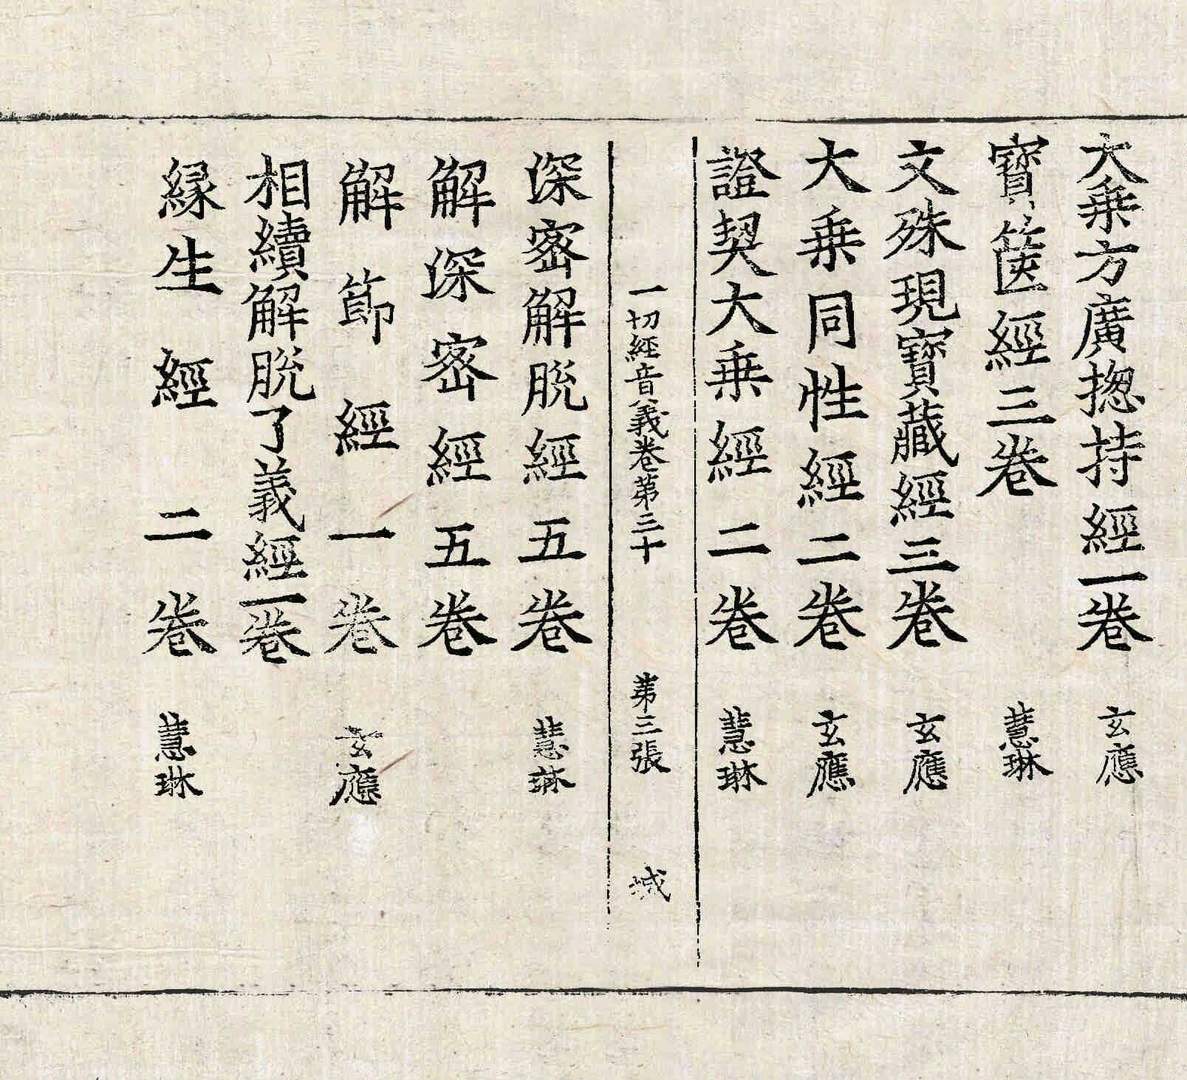 大乗方廣揔持經一卷 玄應
寶篋經三卷 慧琳
文殊現寶藏經三卷 玄應
大乗同性經二卷 玄應
證契大乗經二卷 慧琳
一切經音義卷第三十 第三張 城
深密解脫經五卷 慧琳
解深密經五卷
解節經一卷 玄應
相續解脫了義經一卷
縁生經二卷 慧琳